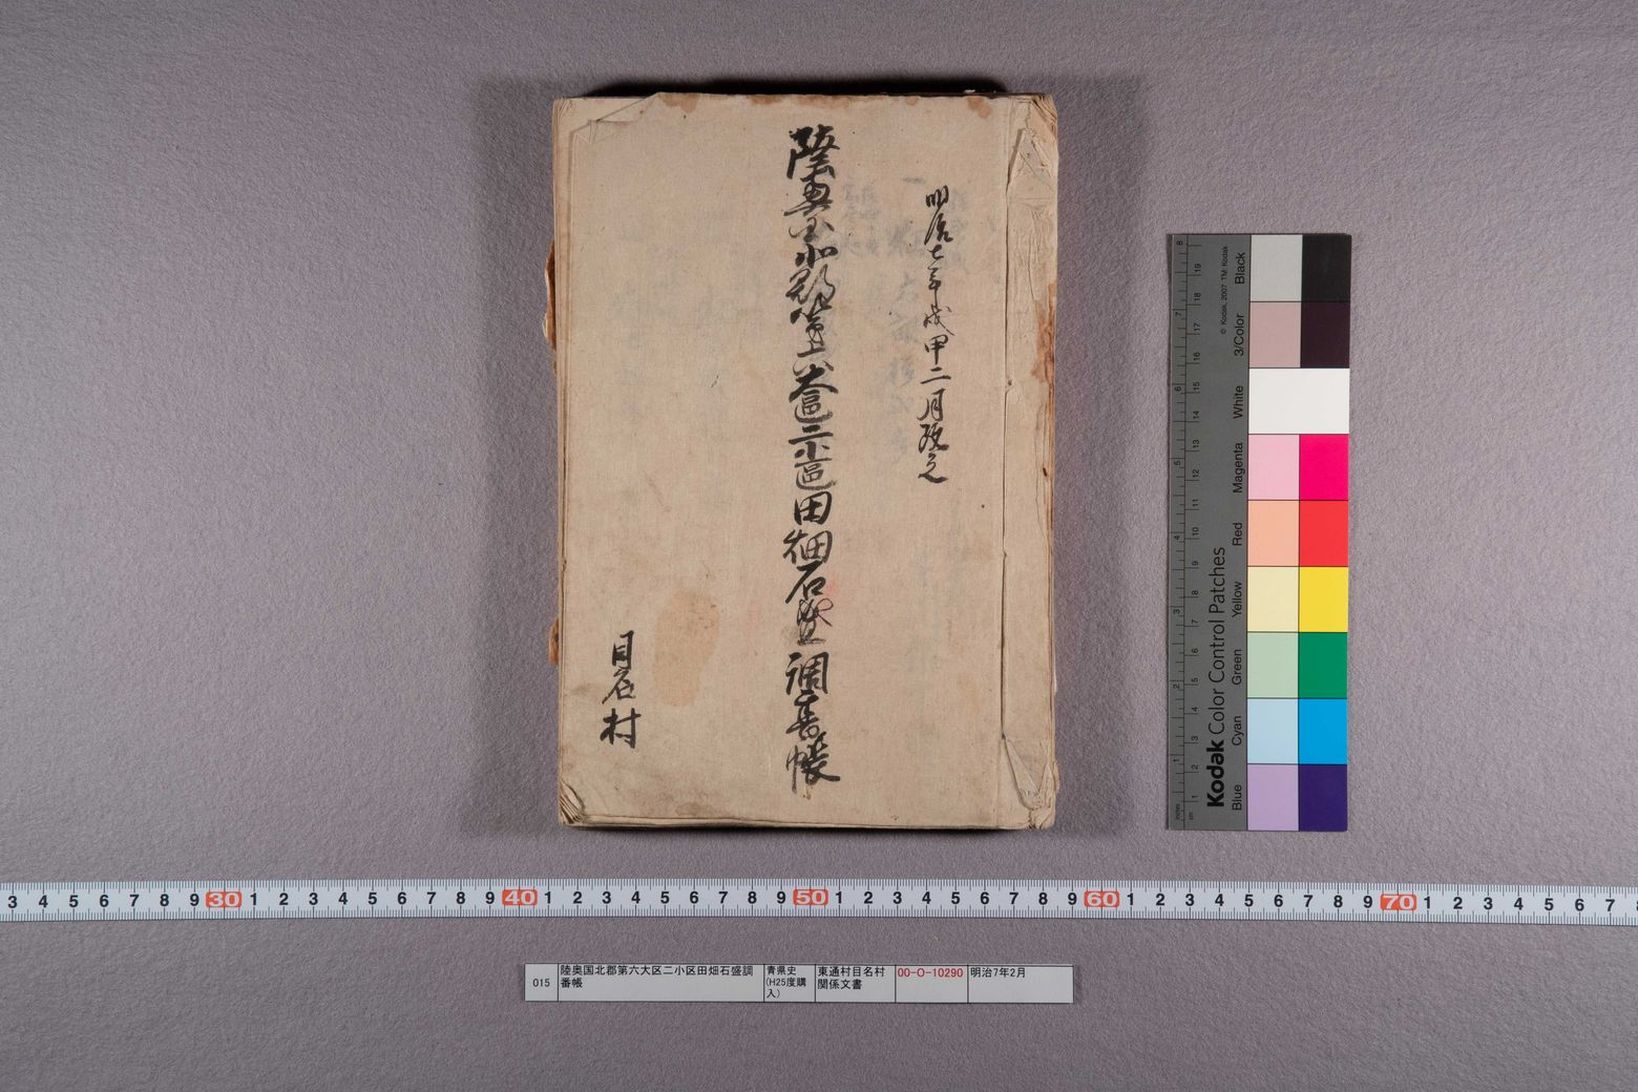 明治七年戌甲二月改之
陸奥国北郡第六大區二小區田畑石盛調書帳
目名村
Kodak Color Control Patches
© Kodak, 2007 TM: Kodak
Blue
Cyan
Green
Yellow
Red
Magenta
White
3/Color
Black
inches
cm
1 2 3 4 5 6 7 8
1 2 3 4 5 6 7 8 9 10 11 12 13 14 15 16 17 18 19
3 4 5 6 7 8 9 30 1 2 3 4 5 6 7 8 9 40 1 2 3 4 5 6 7 8 9 50 1 2 3 4 5 6 7 8 9 60 1 2 3 4 5 6 7 8 9 70 1 2 3 4 5 6 7
015
陸奥国北郡第六大区二小区田畑石盛調
番帳
青県史
(H25度購
入)
東通村目名村
関係文書
00-O-10290
明治7年2月